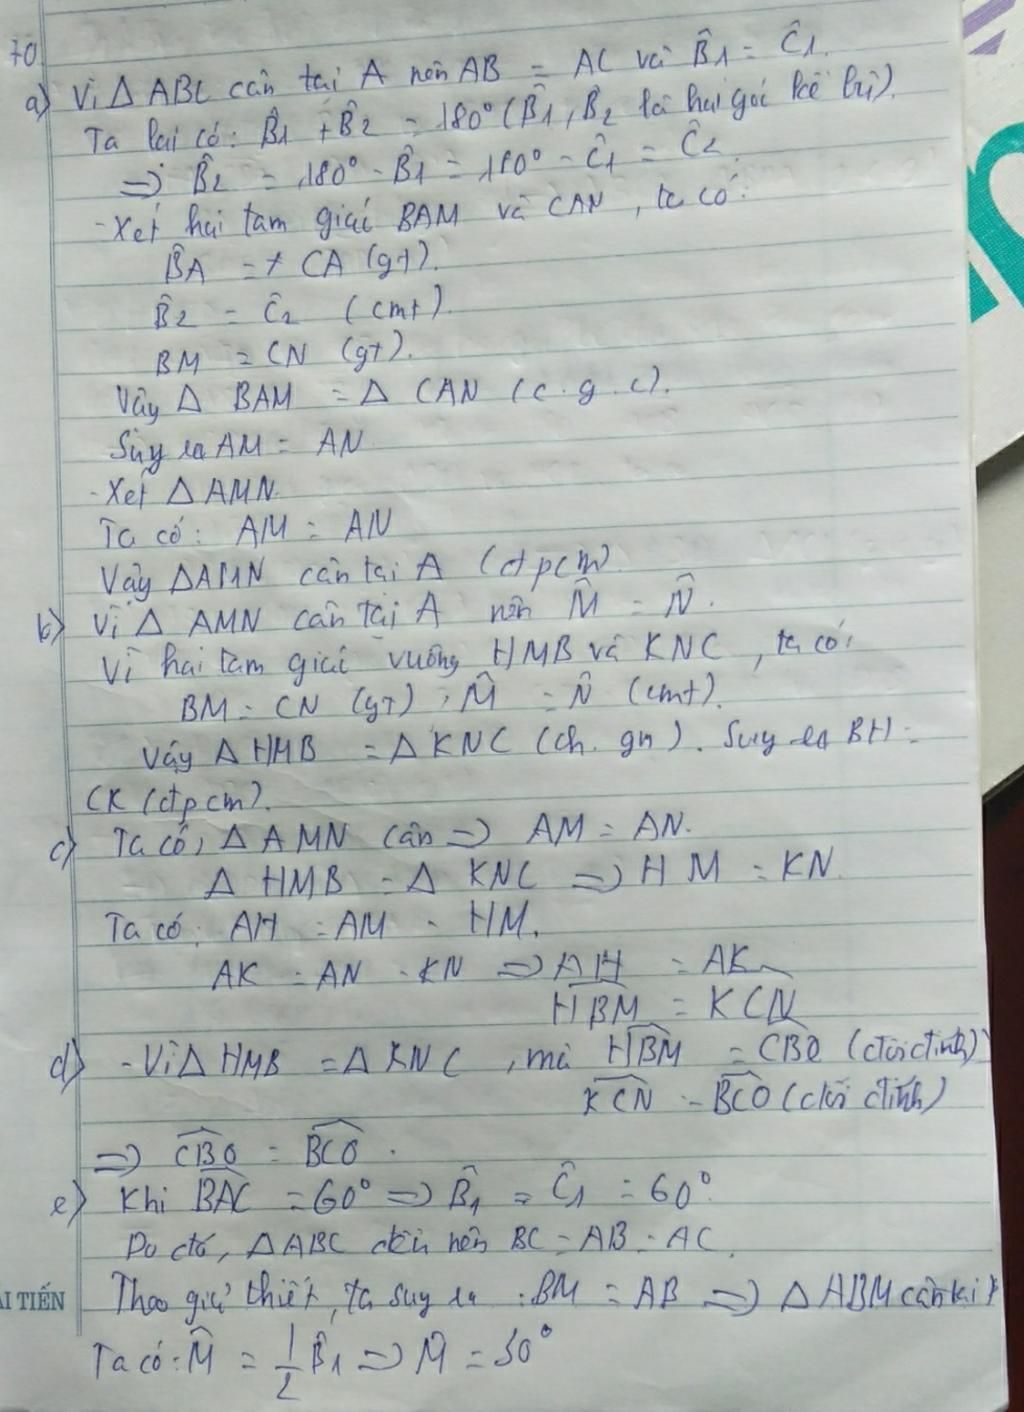 70.
a) Vì Δ ABC cân tại A nên AB = AC và B̂1 = Ĉ1.
Ta lại có: B̂1 + B̂2 = 180° (B̂1, B̂2 là hai góc kề bù).
=> B̂2 = 180° - B̂1 = 180° - Ĉ1 = Ĉ2.
- Xét hai tam giác BAM và CAN, ta có:
BA = CA (gt).
B̂2 = Ĉ2 (cmt).
BM = CN (gt).
Vậy Δ BAM = Δ CAN (c.g.c).
Suy ra AM = AN
- Xét Δ AMN.
Ta có: AM = AN
Vậy ΔAMN cân tại A (đpcm).
b) Vì Δ AMN cân tại A nên M̂ = N̂.
Vì hai tam giác vuông HMB và KNC, ta có:
BM = CN (gt); M̂ = N̂ (cmt).
Vậy Δ HMB = Δ KNC (ch.gn). Suy ra BH =
CK (đpcm).
c) Ta có, Δ AMN cân => AM = AN.
Δ HMB = Δ KNC => HM = KN.
Ta có: AH = AM - HM.
AK = AN - KN => AH = AK
HBM = KCN
d) - Vì Δ HMB = Δ KNC, mà HBM = CBO (đối đỉnh)
KCN = BCO (đối đỉnh)
=> CBO = BCO.
e) Khi BAC = 60° => B̂1 = Ĉ1 = 60°
Do đó, ΔABC đều nên BC = AB = AC.
ẢI TIẾN Theo giả thiết, ta suy ra: BM = AB => Δ ABM cân
Ta có: M̂ = 1/2 B̂1 => M̂ = 30°